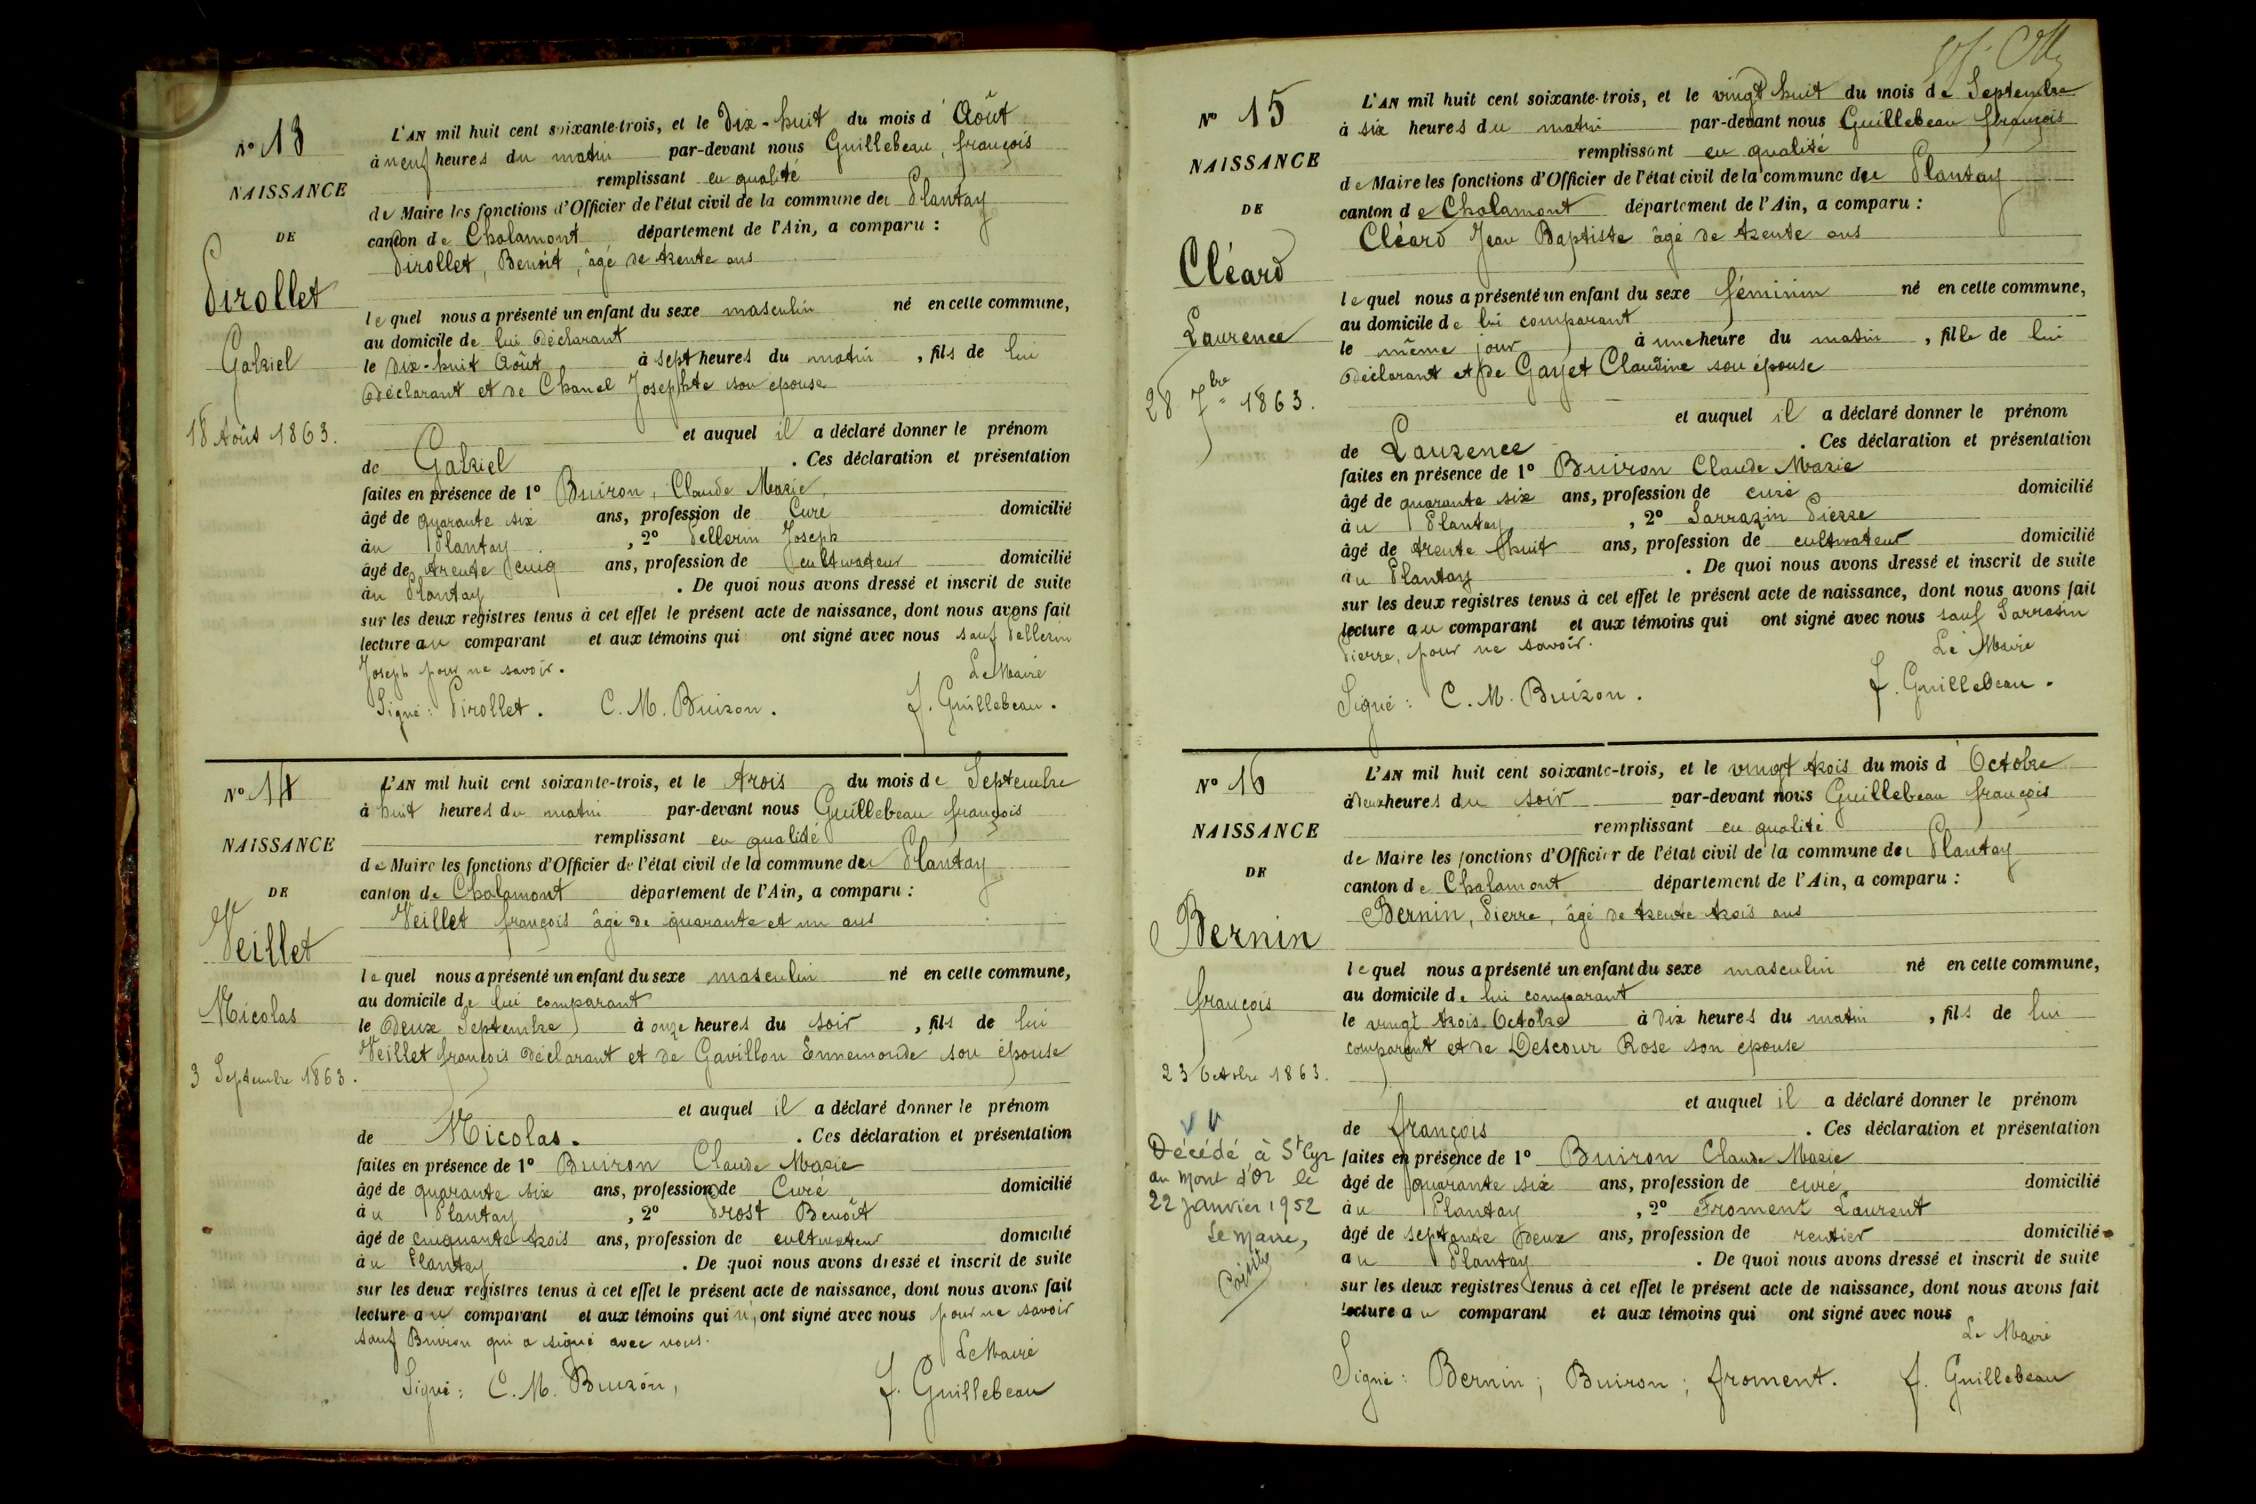 N° 13
NAISSANCE
DE
Pirollet
Gabriel
18 Août 1863.
L'AN mil huit cent soixante-trois, et le Dix-huit du mois d'Août
à neuf heures du matin par-devant nous Guillebeau, françois
remplissant en qualité
de Maire les fonctions d'Officier de l'état civil de la commune du Plantay
canton de Chalamont département de l'Ain, a comparu :
Pirollet, Benoît, âgé de trente ans
lequel nous a présenté un enfant du sexe masculin né en cette commune,
au domicile de lui déclarant
le dix-huit Août à sept heures du matin, fils de lui
déclarant et de Chanel Josephte son épouse
et auquel il a déclaré donner le prénom
de Gabriel. Ces déclaration et présentation
faites en présence de 1° Buiron, Claude Marie,
âgé de quarante six ans, profession de Curé domicilié
au Plantay, 2° Pellerin Joseph
âgé de trente cinq ans, profession de cultivateur domicilié
au Plantay. De quoi nous avons dressé et inscrit de suite
sur les deux registres tenus à cet effet le présent acte de naissance, dont nous avons fait
lecture au comparant et aux témoins qui ont signé avec nous sauf Pellerin
Joseph pour ne savoir.
Le Maire
Signé : Pirollet. C. M. Buiron. f. Guillebeau.
N° 14
NAISSANCE
DE
Veillet
Nicolas
3 Septembre 1863.
L'AN mil huit cent soixante-trois, et le trois du mois de Septembre
à huit heures du matin par-devant nous Guillebeau françois
remplissant en qualité
de Maire les fonctions d'Officier de l'état civil de la commune du Plantay
canton de Chalamont département de l'Ain, a comparu :
Veillet françois âgé de quarante et un ans
lequel nous a présenté un enfant du sexe masculin né en cette commune,
au domicile de lui comparant
le Deux Septembre à onze heures du soir, fils de lui
Veillet françois déclarant et de Gavillon Ennemonde son épouse
et auquel il a déclaré donner le prénom
de Nicolas. . Ces déclaration et présentation
faites en présence de 1° Buiron Claude Marie
âgé de quarante six ans, profession de Curé domicilié
au Plantay, 2° Prost Benoît
âgé de cinquante trois ans, profession de cultivateur domicilié
au Plantay. De quoi nous avons dressé et inscrit de suite
sur les deux registres tenus à cet effet le présent acte de naissance, dont nous avons fait
lecture au comparant et aux témoins qui n'ont signé avec nous pour ne savoir
sauf Buiron qui a signé avec nous.
Le Maire
Signé : C. M. Buiron, f. Guillebeau
N° 15
NAISSANCE
DE
Cléard
Laurence
28 7bre 1863.
L'AN mil huit cent soixante-trois, et le vingt huit du mois de Septembre
à six heures du matin par-devant nous Guillebeau françois
remplissant en qualité
de Maire les fonctions d'Officier de l'état civil de la commune du Plantay
canton de Chalamont département de l'Ain, a comparu :
Cléard Jean Baptiste âgé de trente ans
lequel nous a présenté un enfant du sexe féminin né en cette commune,
au domicile de lui comparant
le même jour à une heure du matin, fille de lui
déclarant et de Gayet Claudine son épouse
et auquel il a déclaré donner le prénom
de Laurence. Ces déclaration et présentation
faites en présence de 1° Buiron Claude Marie
âgé de quarante six ans, profession de curé domicilié
au Plantay, 2° Sarrazin Pierre
âgé de trente huit ans, profession de cultivateur domicilié
au Plantay. De quoi nous avons dressé et inscrit de suite
sur les deux registres tenus à cet effet le présent acte de naissance, dont nous avons fait
lecture au comparant et aux témoins qui ont signé avec nous sauf Sarrasin
Pierre, pour ne savoir.
Le Maire
Signé : C. M. Buiron. f. Guillebeau.
N° 16
NAISSANCE
DE
Bernin
françois
23 Octobre 1863.
Décédé à St Cyr
au Mont d'Or le
22 Janvier 1952
Le Maire,
L'AN mil huit cent soixante-trois, et le vingt trois du mois d'Octobre
à deux heures du soir par-devant nous Guillebeau françois
remplissant en qualité
de Maire les fonctions d'Officier de l'état civil de la commune du Plantay
canton de Chalamont département de l'Ain, a comparu :
Bernin, Pierre, âgé de trente trois ans
lequel nous a présenté un enfant du sexe masculin né en cette commune,
au domicile de lui comparant
le vingt trois Octobre à dix heures du matin, fils de lui
comparant et de Descour Rose son épouse
et auquel il a déclaré donner le prénom
de françois. Ces déclaration et présentation
faites en présence de 1° Buiron Claude Marie
âgé de quarante six ans, profession de curé domicilié
au Plantay, 2° Froment Laurent
âgé de septante deux ans, profession de rentier domicilié
au Plantay. De quoi nous avons dressé et inscrit de suite
sur les deux registres tenus à cet effet le présent acte de naissance, dont nous avons fait
lecture au comparant et aux témoins qui ont signé avec nous
Le Maire
Signé : Bernin ; Buiron ; froment. f. Guillebeau